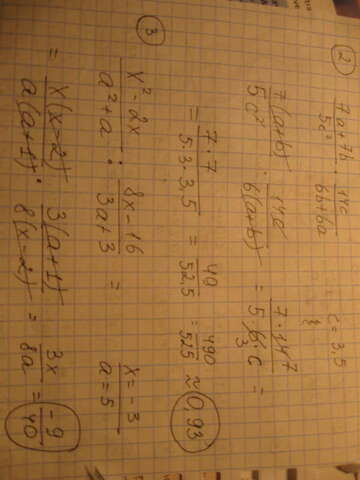 ② (7a+7b)/(5c²) · (14c)/(6b+6a)   c = 3,5
(7(a+b))/(5c²) · (14c)/(6(a+b)) = (7·14 7)/(5·6 3·c) =
= (7·7)/(5·3·3,5) = 49/52,5 = 490/525 ≈ 0,93
③ (x²-2x)/(a²+a) : (8x-16)/(3a+3) =   x = -3
a = 5
= (x(x-2))/(a(a+1)) · (3(a+1))/(8(x-2)) = 3x/8a = -9/40